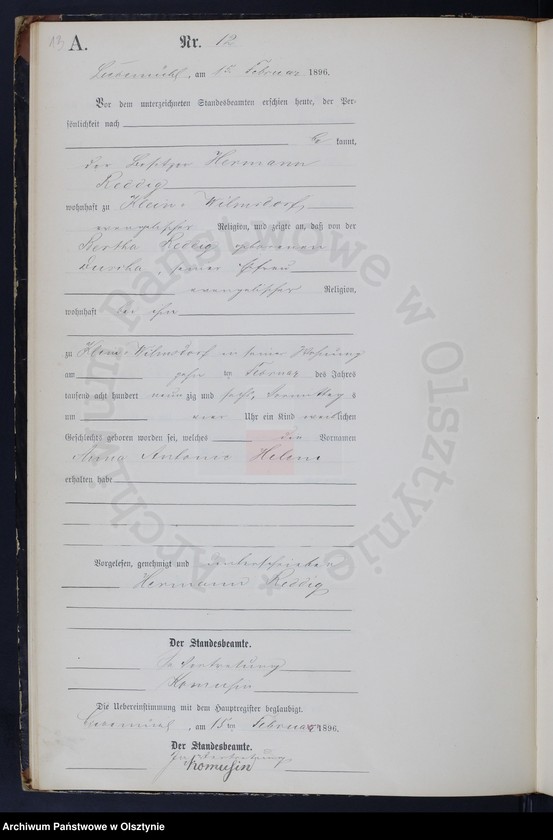 13
A. Nr. 12
Liebemühl, am 15. Februar 1896.
Vor dem unterzeichneten Standesbeamten erschien heute, der Per-
sönlichkeit nach
kannt,
der Besitzer Hermann
Reddig
wohnhaft zu Klein Wilmsdorf,
evangelischer Religion, und zeigte an, daß von der
Bertha Reddig geborenen
seiner Ehefrau
evangelischer Religion,
wohnhaft bei ihm
zu Klein Wilmsdorf in seiner Wohnung
am Februar des Jahres
tausend acht hundert neunzig und sechs, Vormittags
um vier Uhr ein Kind weiblichen
Geschlechts geboren worden sei, welches den Vornamen
Anna Antonie Helene
erhalten habe
Vorgelesen, genehmigt und unterschrieben
Hermann Reddig
Der Standesbeamte.
In Vertretung
Komusin
Die Uebereinstimmung mit dem Hauptregister beglaubigt.
Liebemühl, am 15ten Februar 1896.
Der Standesbeamte.
In Vertretung
Komusin
Archiwum Państwowe w Olsztynie
Archiwum Państwowe w Olsztynie